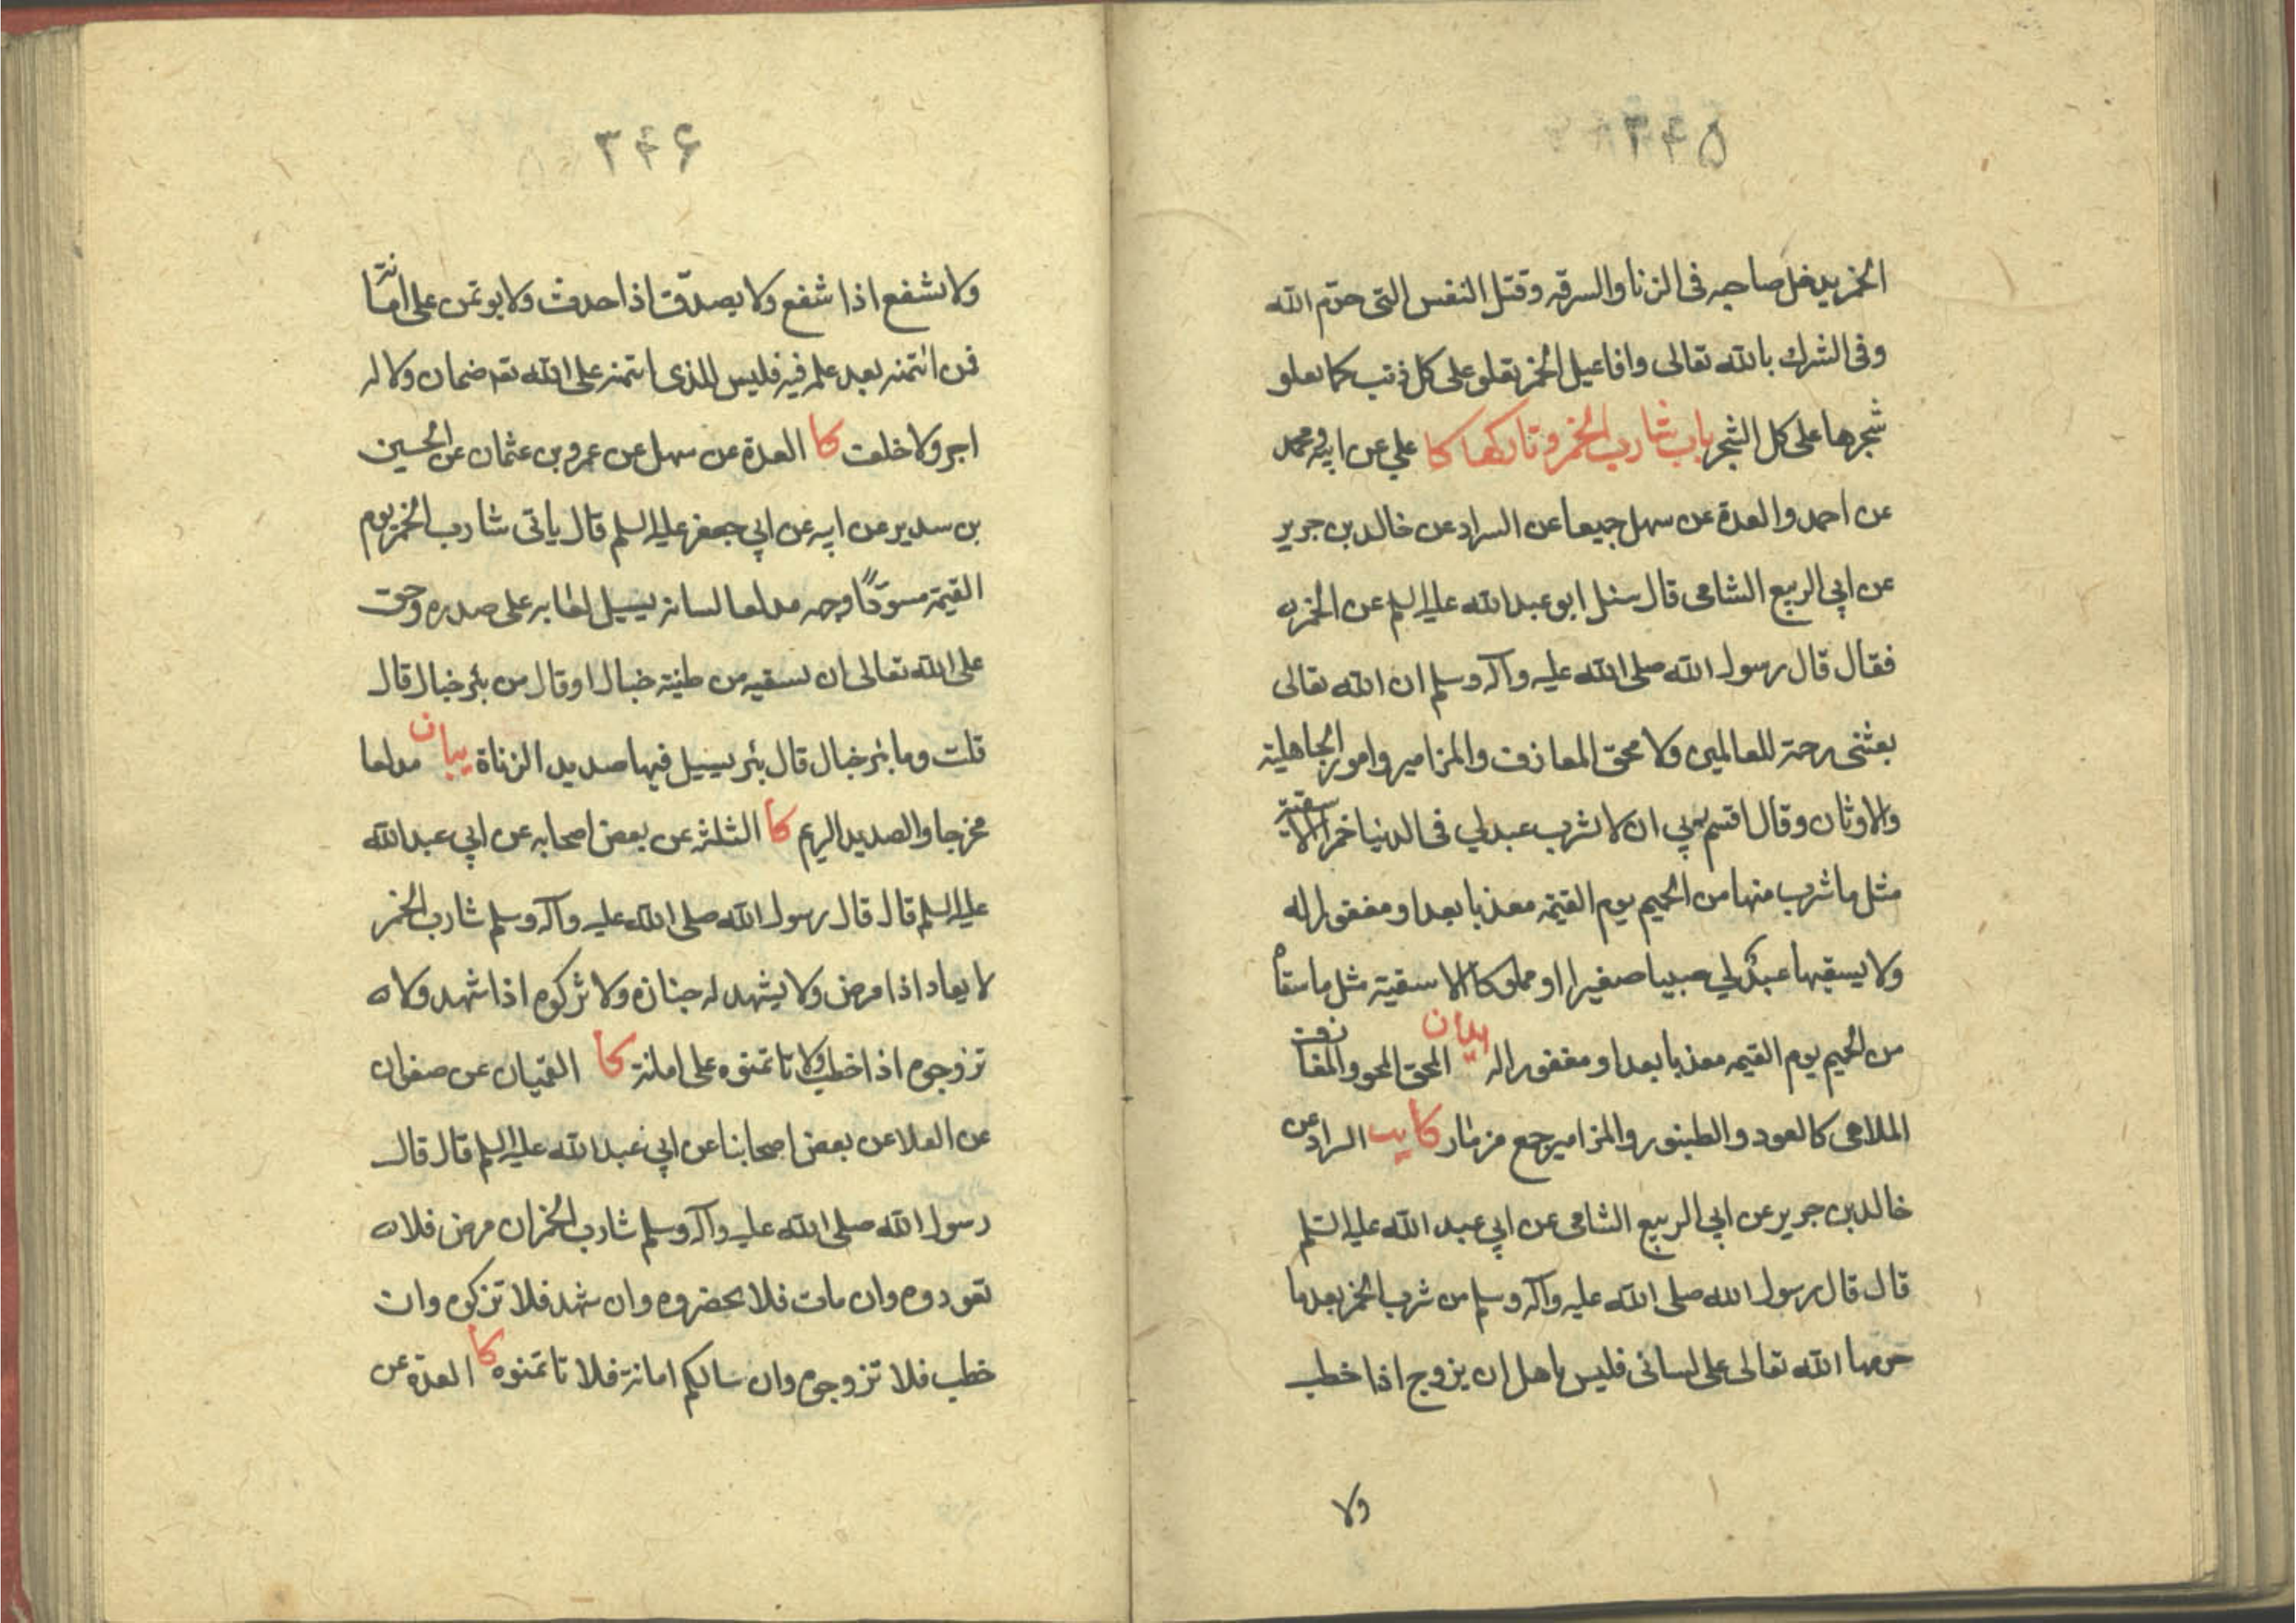 ۳۴۵
الخمر يدخل صاحبه فى الزنا والسرقه وقتل النفس التى حرّم الله
وفى الشرك بالله تعالى وافاعيل الخمر تعلو على كل ذنب كما يعلو
شجرها على كل الشجر باب شارب الخمر وتاركها كا علي عن ابيه ومحمد
عن احمد والعدة عن سهل جميعا عن السراد عن خالد بن جرير
عن ابي الربيع الشامى قال سئل ابو عبد الله عليه السلم عن الخمر
فقال قال رسول الله صلى الله عليه وآله وسلم ان الله تعالى
بعثنى رحمة للعالمين ولامحق المعازف والمزامير وامور الجاهلية
والاوثان وقال اقسم ربي ان لا يشرب عبد لي فى الدنيا خمرا الا سقيته
مثل ما شرب منها من الحميم يوم القيمة معذبا بعد او مغفورا له
ولا يسقيها عبد لي صبيا صغيرا او مملوكا الا سقيته مثل ما سقاه
من الحميم يوم القيمه معذبا بعد او مغفورا له بيان المحق المحو والمعازف
الملاهى كالعود والطنبور والمزامير جمع مزمار كا يب السراد عن
خالد بن جرير عن ابي الربيع الشامى عن ابي عبد الله عليه السلم
قال قال رسول الله صلى الله عليه وآله وسلم من شرب الخمر بعد ما
حرمها الله تعالى على لسانى فليس باهل ان يزوج اذا خطب
ولا
۳۴۶
ولا يشفع اذا شفع ولا يصدّق اذا حدث ولا يوتمن على امانة
فمن ائتمنه بعد علمه فيه فليس للذى ائتمنه على الله تعه ضمان ولا له
اجر ولا خلف كا العدة عن سهل عن عمرو بن عثمان عن الحسين
بن سدير عن ابيه عن ابي جعفر عليه السلم قال ياتى شارب الخمر يوم
القيمة مسودّاً وجهه مدلعا لسانه يسيل لعابه على صدره وحق
على الله تعالى ان يسقيه من طينة خبال او قال من بئر خبال قال
قلت وما بئر خبال قال بئر يسيل فيها صديد الزناة بيان مدلعا
مخرجا والصديد الريم كا الثلثة عن بعض اصحابه عن ابي عبد الله
عليه السلم قال قال رسول الله صلى الله عليه وآله وسلم شارب الخمر
لا يعاد اذا مرض ولا يشهد له جنازة ولا تزكوه اذا شهد ولا
تزوجوه اذا خطب ولا تاتمنوه على امانة كا القميان عن صفوان
عن العلا عن بعض اصحابنا عن ابي عبد الله عليه السلم قال قال
رسول الله صلى الله عليه وآله وسلم شارب الخمر ان مرض فلا
تعودوه وان مات فلا تحضروه وان شهد فلا تزكوه وان
خطب فلا تزوجوه وان سالكم امانة فلا تاتمنوه كا العدة عن